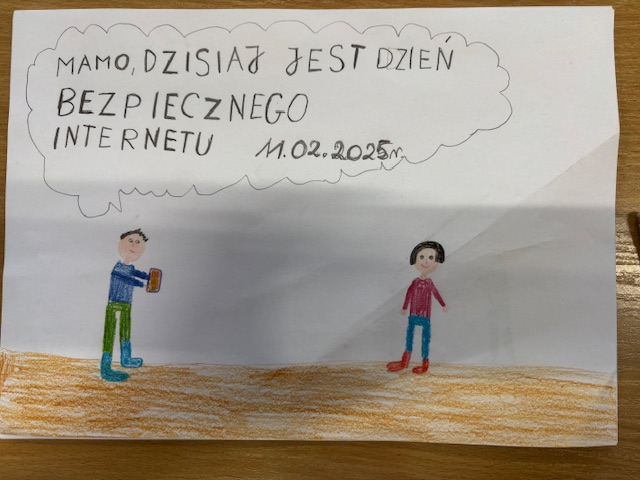 MAMO, DZISIAJ JEST DZIEŃ
BEZPIECZNEGO
INTERNETU 11.02.2025r.